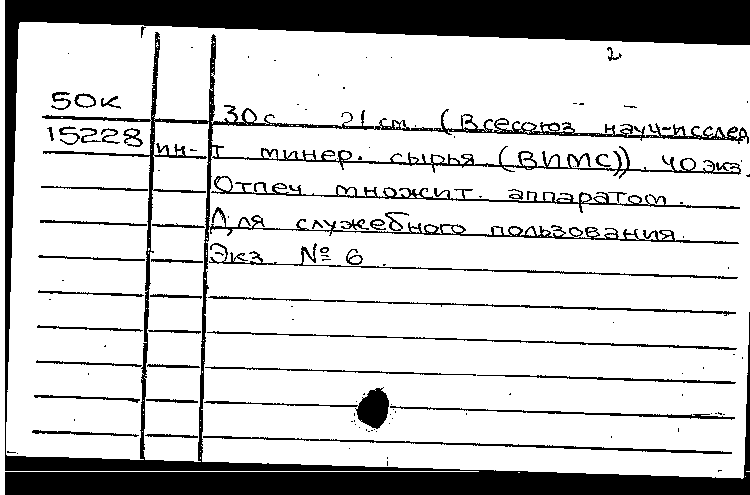 2
50К
30 с. 21 см. (Всесоюз науч-исслед
15228 ин-т минер. сырья (ВИМС)). 40 экз.
Отпеч. множит. аппаратом.
Для служебного пользования.
Экз. № 6.